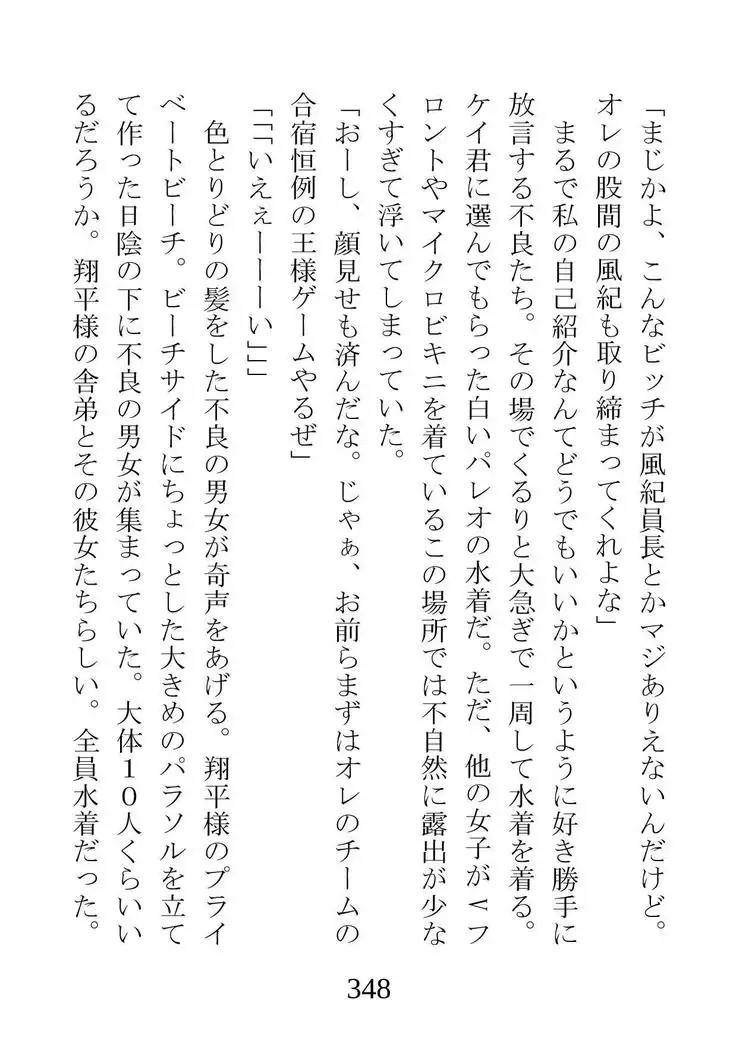 「まじかよ、こんなビッチが風紀員長とかマジありえないんだけど。
オレの股間の風紀も取り締まってくれよな」
まるで私の自己紹介なんてどうでもいいかというように好き勝手に
放言する不良たち。その場でくるりと大急ぎで一周して水着を着る。
ケイ君に選んでもらった白いパレオの水着だ。ただ、他の女子がVフ
ロントやマイクロビキニを着ているこの場所では不自然に露出が少な
くすぎて浮いてしまっていた。
「おーし、顔見せも済んだな。じゃぁ、お前らまずはオレのチームの
合宿恒例の王様ゲームやるぜ」
「「「いえぇーーーい」」」
色とりどりの髪をした不良の男女が奇声をあげる。翔平様のプライ
ベートビーチ。ビーチサイドにちょっとした大きめのパラソルを立て
て作った日陰の下に不良の男女が集まっていた。大体１０人くらいい
るだろうか。翔平様の舎弟とその彼女たちらしい。全員水着だった。
348